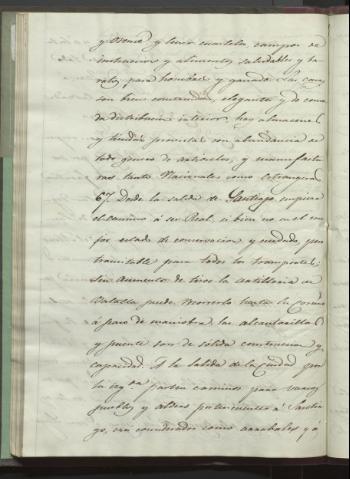 y Osema y tener cuarteles, campos de
instruccion y alimentos saludables y ba-
ratos para hombres y ganados. Las casas
son bien construidas, elegantes y de como-
da distribucion interior, hay almacenes
y tiendas provistas con abundancia de
todo genero de articulos, y manufactu-
ras tanto Nacionales como extrangeras
67. Desde la salida de Santiago empieza
el camino á ser Real, si bien no en el me-
jor estado de conservacion y cuidado, pero
transitable para todos los transportes;
sin aumento de tiros la artilleria de
batalla puede moverse hasta la Coruña
á paso de maniobra, las alcantarillas
y puentes son de sólida construccion y
capacidad. A la salida de la Ciudad por
la izqda parten caminos para varios
pueblos y aldeas pertenecientes á Santia-
go, son considerados como arrabales y á